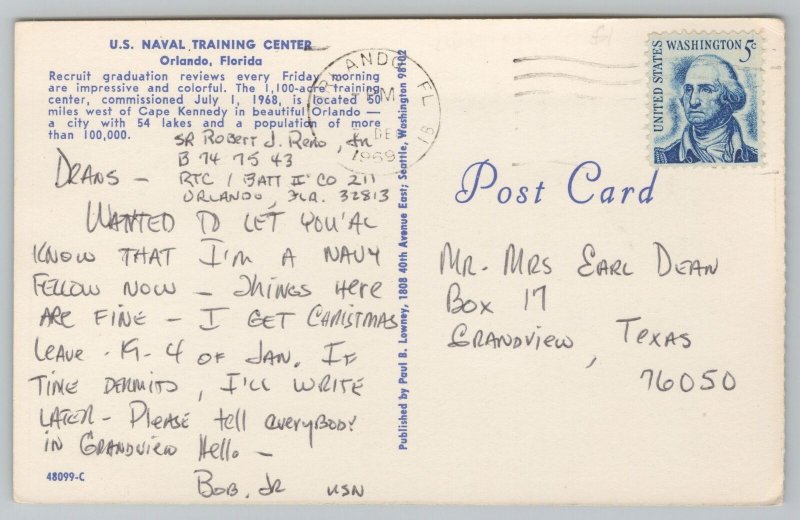 U.S. NAVAL TRAINING CENTER
Orlando, Florida
Recruit graduation reviews every Friday morning
are impressive and colorful. The 1,100-acre training
center, commissioned July 1, 1968, is located 50
miles west of Cape Kennedy in beautiful Orlando —
a city with 54 lakes and a population of more
than 100,000.
SR Robert J. Reno, Jr
B 74 75 43
RTC / BATT II CO 211
ORLANDO, FLA. 32813
DEANS —
WANTED TO LET YOU'AL
KNOW THAT I'M A NAVY
FELLOW NOW — THINGS HERE
ARE FINE — I GET CHRISTMAS
LEAVE 19-4 OF JAN. IF
TIME PERMITS, I'LL WRITE
LATER — PLEASE tell everyBODY
IN GRANDVIEW Hello —
BOB, JR USN
48099-C
Published by Paul B. Lowney, 1808 40th Avenue East; Seattle, Washington 98102
ORLANDO FL
PM
DEC
1969
UNITED STATES
WASHINGTON 5c
Post Card
MR. MRS EARL DEAN
BOX 17
GRANDVIEW, TEXAS
76050